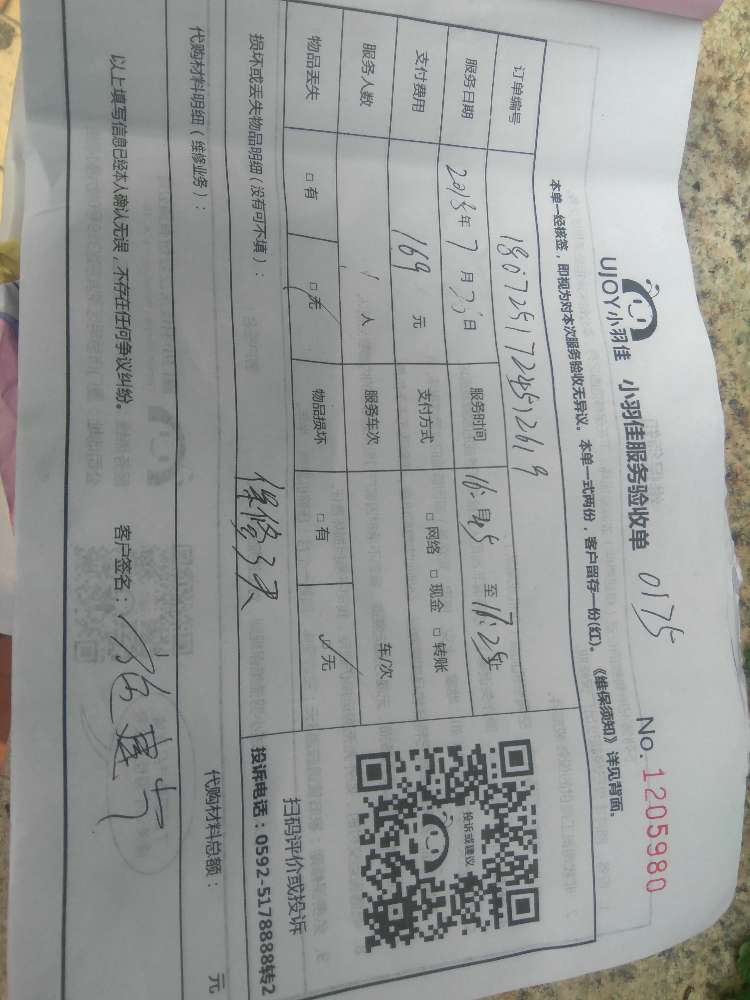 UJOY小羽佳 小羽佳服务验收单 0175 No. 1205980
本单一经核签，即视为对本次服务验收无异议。本单一式两份，客户留存一份(红)。《维保须知》详见背面。
订单编号
服务日期 年 7 月 日 服务时间 至 17:25
支付费用 169 元 支付方式 □网络 □现金 □转账
服务人数 1 人 服务车次 车/次
物品丢失 □有 □无 物品损坏 □有 □无
投诉或建议
扫码评价或投诉
投诉电话：0592-5178888转2
损坏或丢失物品明细（没有可不填）： 保修3天
代购材料明细（维修业务）： 代购材料总额： 元
以上填写信息已经本人确认无误，不存在任何争议纠纷。 客户签名：